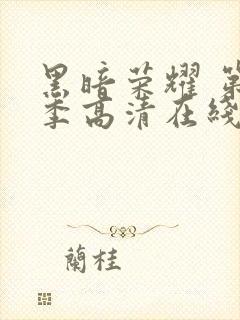 黑暗荣耀 第
季高清在綫
蘭桂